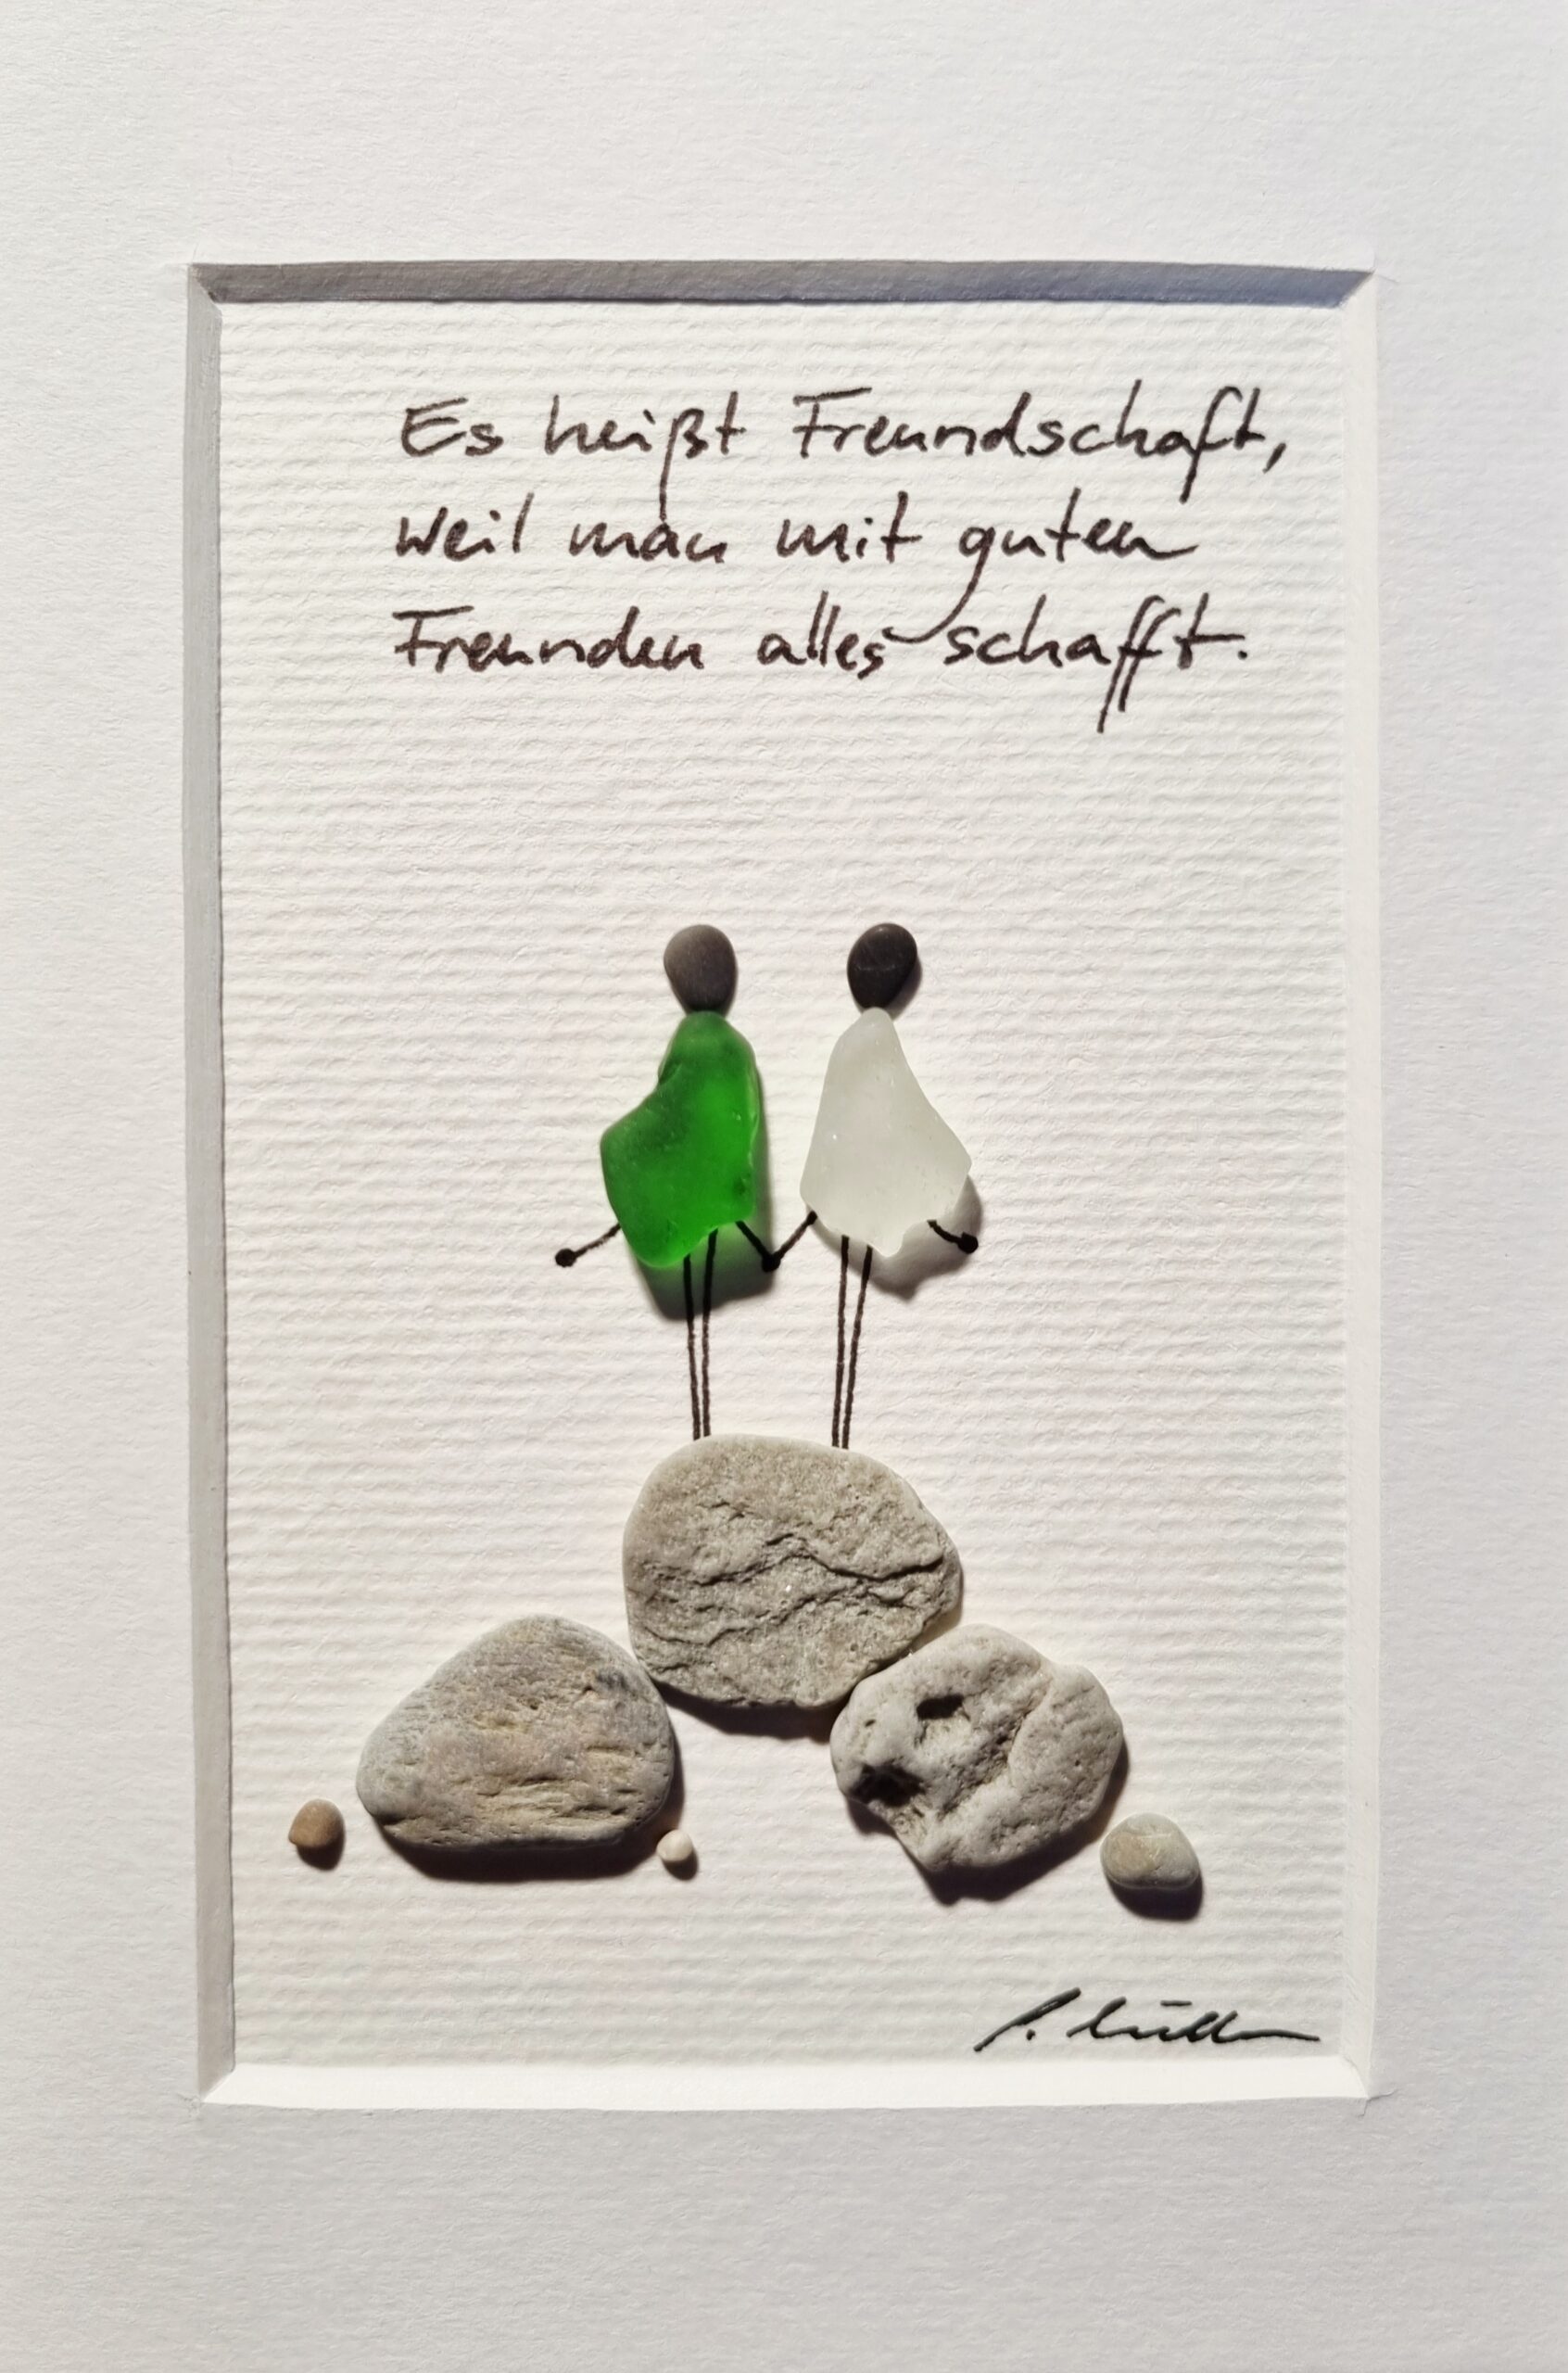 Es heißt Freundschaft,
weil man mit guten
Freunden alles schafft.